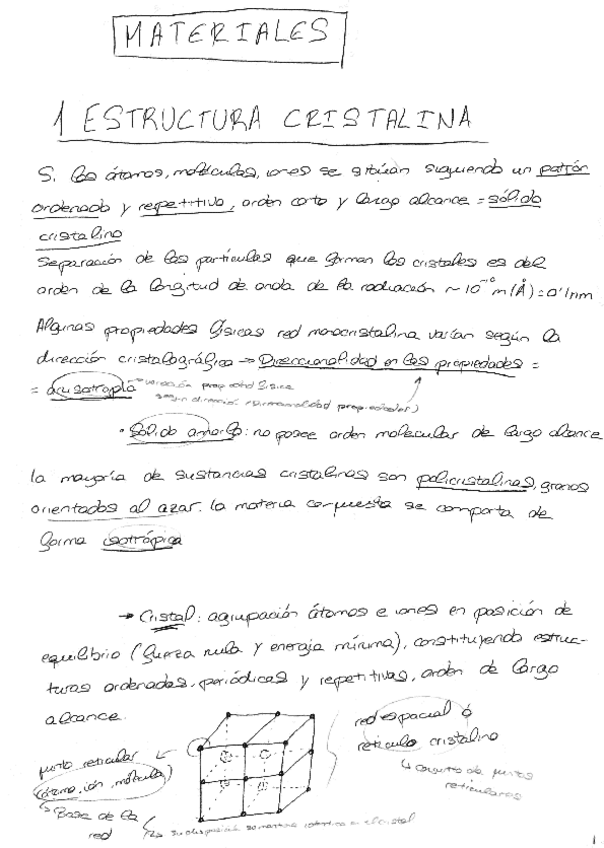 MATERIALES
1 ESTRUCTURA CRISTALINA
S. los átomos, moléculas, iones se sitúan siguiendo un patrón
ordenado y repetitivo, orden corto y largo alcance = sólido
cristalino
Separación de las partículas que forman los cristales es del
orden de la longitud de onda de la radiación ~ 10⁻¹⁰ m (Å) = 0'1nm
Algunas propiedades físicas red monocristalina varían según la
dirección cristalográfica → Direccionalidad en las propiedades =
= anisotropía → variación propiedad física
según dirección (direccionalidad propiedades)
• Sólido amorfo: no posee orden molecular de largo alcance
la mayoría de sustancias cristalinas son policristalinas, granos
orientados al azar. la materia compuesta se comporta de
forma isotrópica
→ Cristal: agrupación átomos e iones en posición de
equilibrio (fuerza nula y energía mínima), constituyendo estruc-
turas ordenadas, periódicas y repetitivas, orden de largo
alcance.
red espacial ó
retículo cristalino
↳ conjunto de puntos
reticulares
punto reticular
(átomo, ión, molécula)
↳ Base de la
red
↳ su disposición se mantiene en el cristal